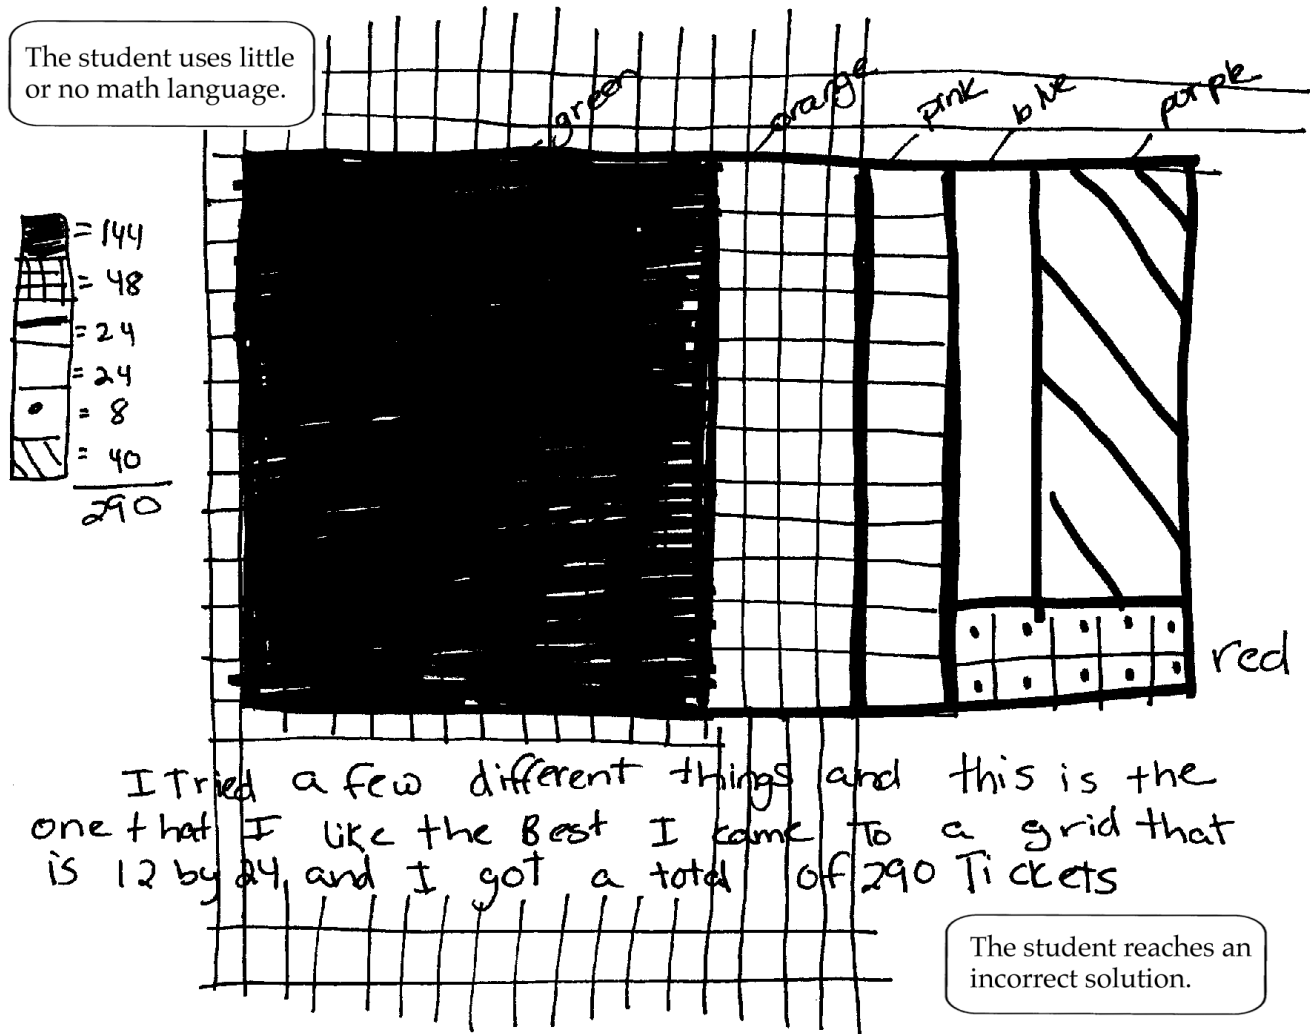 The student uses little
or no math language.
green
orange
pink
blue
purple
= 144
= 48
= 24
= 24
= 8
= 40
290
red
I Tried a few different things and this is the
one that I like the Best I came To a grid that
is 12 by 24, and I got a total of 290 Tickets
The student reaches an
incorrect solution.